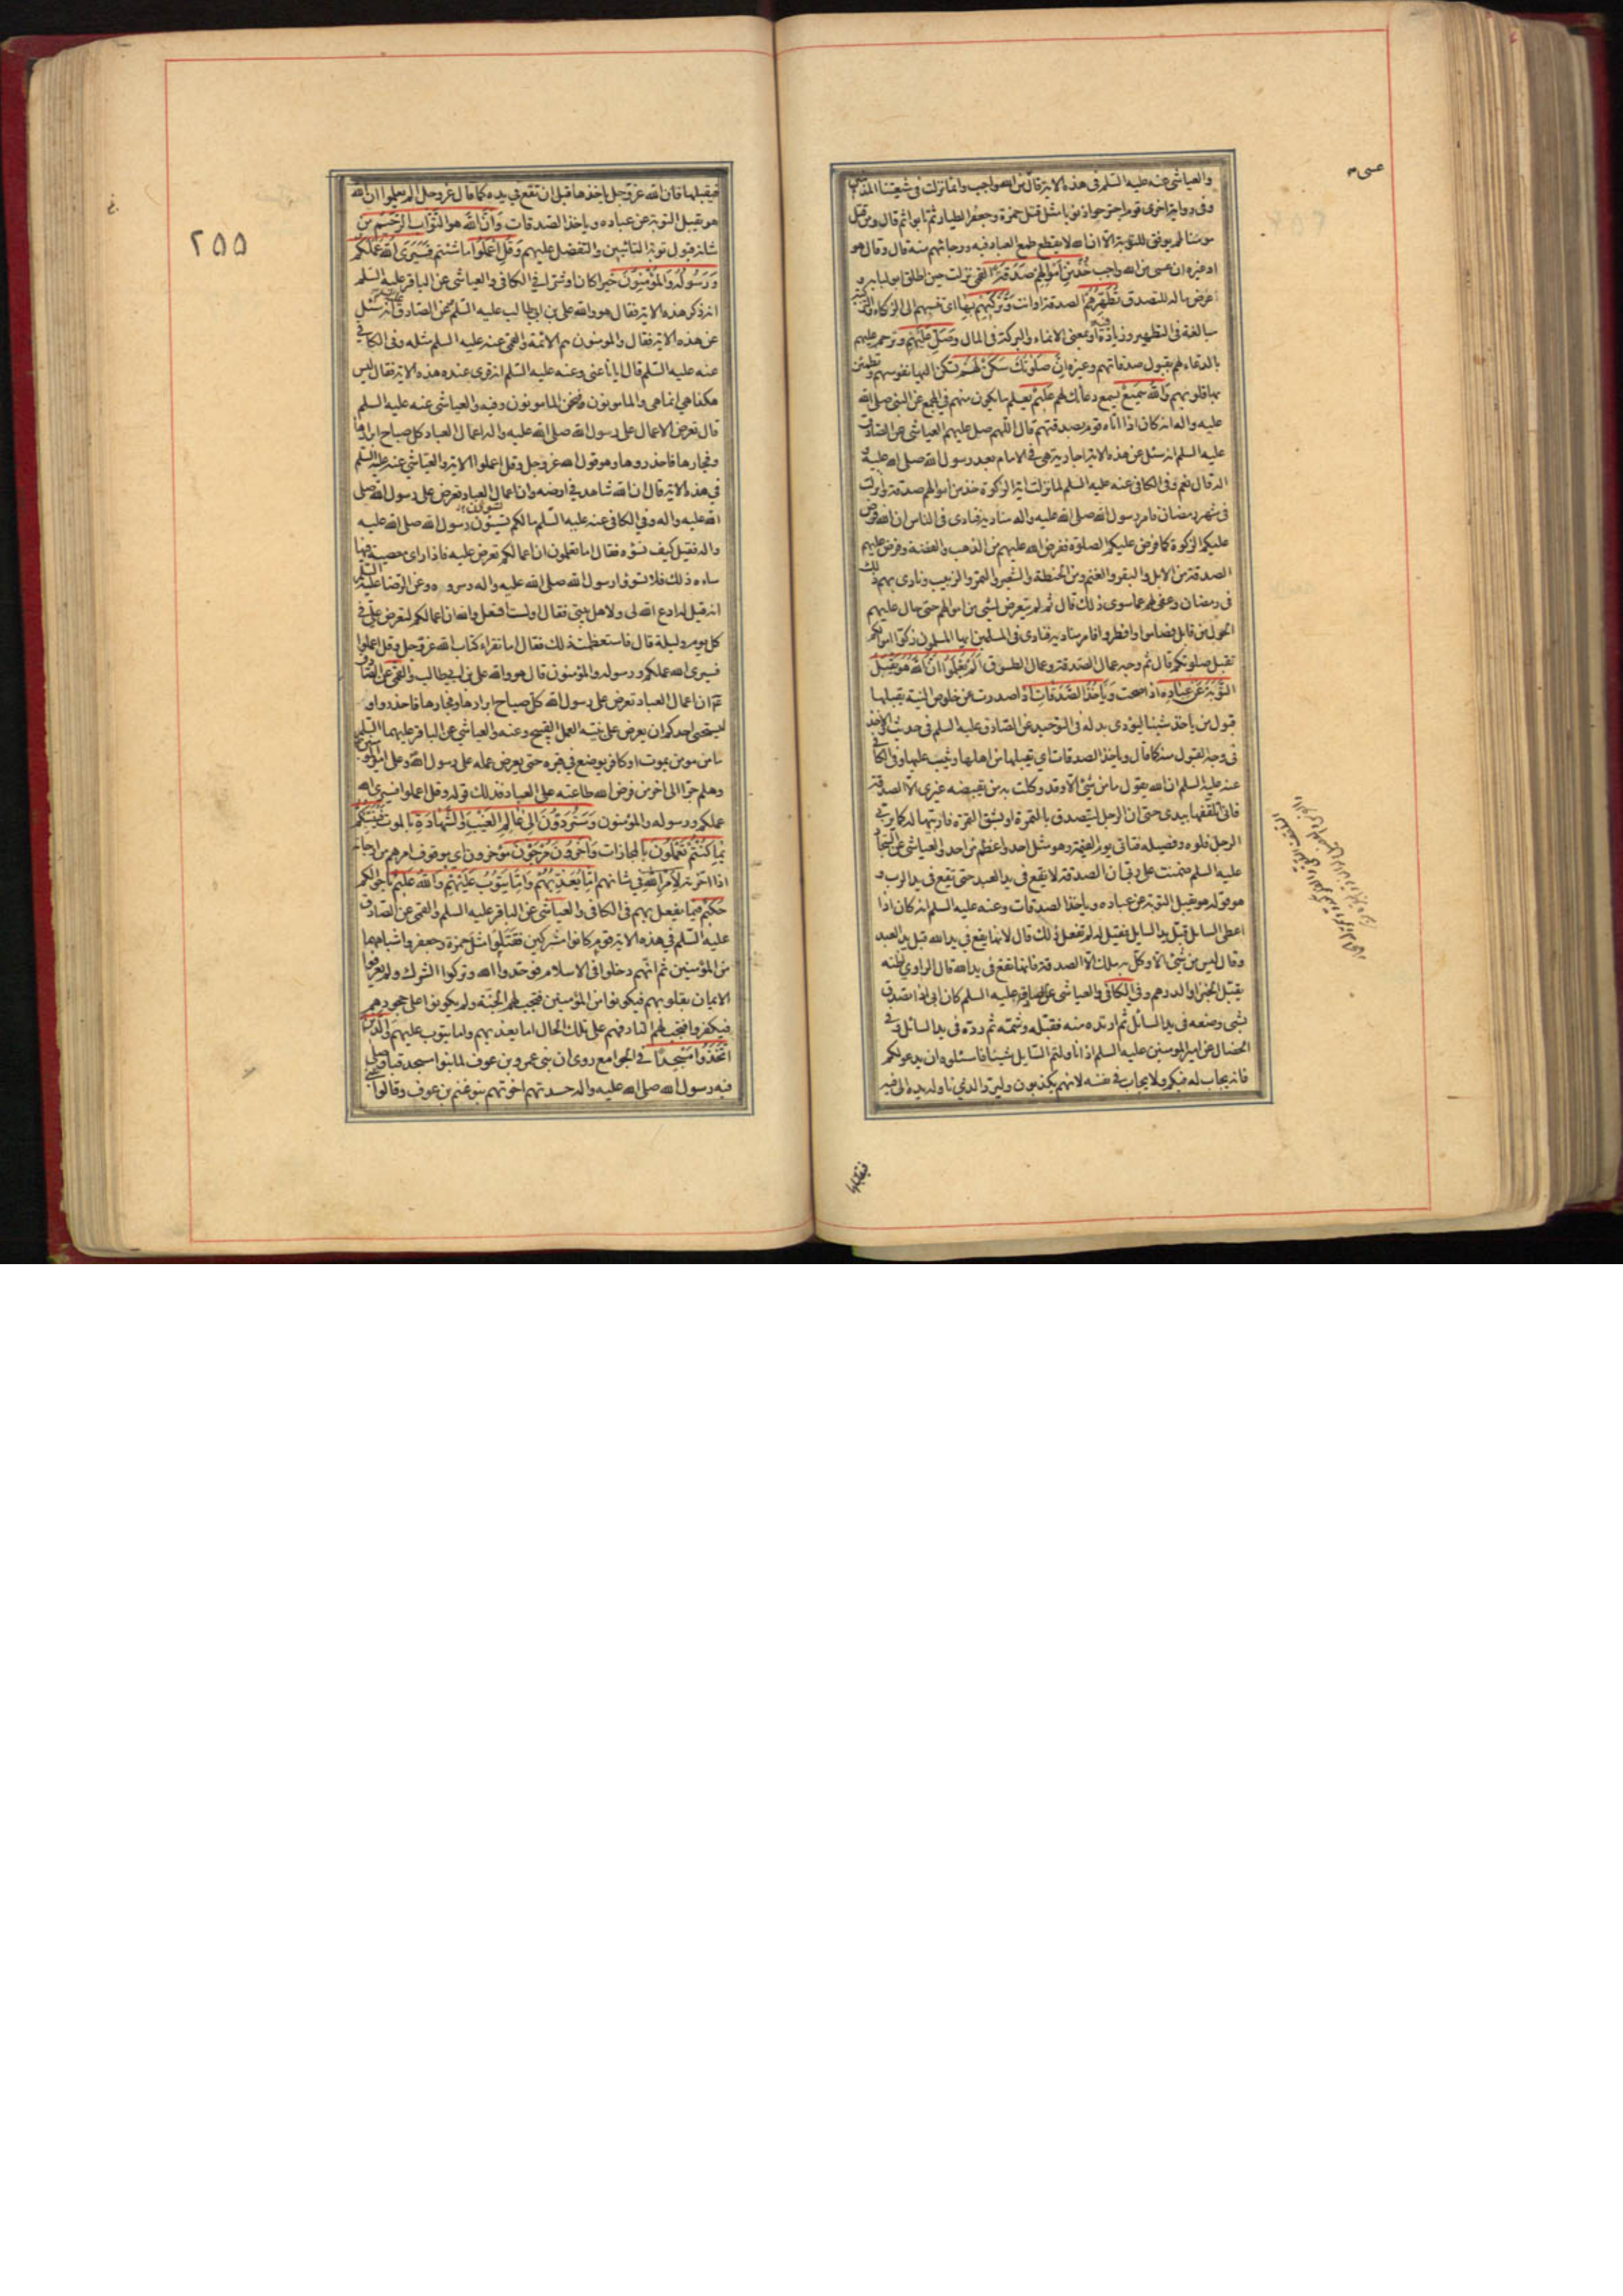 عسى
والعياشي عنه عليه السلم في هذه الاية قال من الله واجب وانما نزلت في شيعتنا المذنبين
وفي رواية اخرى قوم اجترحوا ذنوبا مثل قتل حمزة وجعفر الطيار ثم تابوا ثم قال ومن قتل
مومنا لم يوفق للتوبة الا ان الله لا يقطع طمع العباد فيه ورجائهم منه قال وقال هو
او غيره ان عسى من الله واجب خُذْ مِنْ أَمْوَالِهِمْ صَدَقَةً القمي نزلت حين اطلق ابو لبابه و
عرض ماله للتصدق تُطَهِّرُهُمْ الصدقة او انت وَتُزَكِّيهِمْ بِهَا اي تنسبهم الى الزكاء
مبالغة في التطهير وزيادة فيه او بمعنى الانماء والبركة في المال وَصَلِّ عَلَيْهِمْ وترحم عليهم
بالدعاء لهم بقبول صدقاتهم وغيره إِنَّ صَلٰوتَكَ سَكَنٌ لَهُمْ تسكن اليها نفوسهم وتطمئن
بها قلوبهم وَاللهُ سَمِيعٌ يسمع دعائك لهم عَلِيمٌ يعلم ما يكون منهم في المجمع عن النبي صلى الله
عليه واله انه كان اذا اتاه قوم بصدقتهم قال اللهم صل عليهم العياشي عن الصادق
عليه السلم انه سئل عن هذه الاية اجارية هي في الامام بعد رسول الله صلى الله عليه و
اله قال نعم وفي الكافي عنه عليه السلم لما نزلت اية الزكوة خذ من اموالهم صدقة وانزلت
في شهر رمضان فامر رسول الله صلى الله عليه واله مناديه فنادى في الناس ان الله فرض
عليكم الزكوة كما فرض عليكم الصلوة ففرض الله عليهم من الذهب والفضة وفرض عليهم
الصدقة من الابل والبقر والغنم ومن الحنطة والشعير والتمر والزبيب ونادى بهم ذلك
في رمضان وعفى لهم عما سوى ذلك قال ثم لم يتعرض لشئ من اموالهم حتى حال عليهم
الحول من قابل فصاموا وافطروا فامر مناديه فنادى في المسلمين ايها المسلمون زكوا اموالكم
تقبل صلوتكم قال ثم وجه عمال الصدقة وعمال الطسوق أَلَمْ يَعْلَمُوا أَنَّ اللهَ هُوَ يَقْبَلُ
التَّوْبَةَ عَنْ عِبَادِهِ اذا صحت وَيَأْخُذُ الصَّدَقَاتِ اذا صدرت عن خلوص النية يقبلها
قبول من ياخذ شيئا ليؤدى بدله في التوحيد عن الصادق عليه السلم في حديث والاخذ
في وجه القبول منه كما قال وياخذ الصدقات اي يقبلها من اهلها ويثيب عليها وفي الكافي
عنه عليه السلم ان الله يقول ما من شئ الا وقد وكلت به من يقبضه غيري الا الصدقة
فاني اتلقفها بيدي حتى ان الرجل ليتصدق بالتمرة او بشق التمرة فاربيها له كما يربي
الرجل فلوه وفصيله فتاتي يوم القيمة وهو مثل احد واعظم من احد والعياشي عن السجاد
عليه السلم ضمنت على ربي ان الصدقة لا تقع في يد العبد حتى تقع في يد الرب و
هو قوله هو يقبل التوبة عن عباده وياخذ الصدقات وعنه عليه السلم انه كان اذا
اعطى السايل قبل يد السايل فقيل له لم تفعل ذلك قال لانها يقع في يد الله قبل يد العبد
وقال ليس من شئ الا وكل به ملك الا الصدقة فانها تقع في يد الله قال الراوي اظنه
يقبل الخبز او الدرهم وفي الكافي والعياشي عن الصادق عليه السلم كان ابي اذا تصدق
بشئ وضعه في يد السائل ثم ارتده منه فقبله وشمه ثم رده في يد السائل وفي
الخصال عن امير المومنين عليه السلم اذا ناولتم السايل شيئا فاسئلوه ان يدعو لكم
فانه يجاب له فيكم ولا يجاب في نفسه لانهم يكذبون وليرد الذي ناوله يده الى فيه
فيقبلها
٢٥٥
فيقبلها فان الله عز وجل ياخذها قبل ان تقع في يده كما قال عز وجل الم يعلموا ان الله
هو يقبل التوبة عن عباده وياخذ الصدقات وَأَنَّ اللهَ هُوَ التَّوَّابُ الرَّحِيمُ من
شانه قبول توبة التائبين والتفضل عليهم وَقُلِ اعْمَلُوا ما شئتم فَسَيَرَى اللهُ عَمَلَكُمْ
وَرَسُولُهُ وَالْمُؤْمِنُونَ خيرا كان او شرا في الكافي والعياشي عن الباقر عليه السلم
انه ذكر هذه الاية فقال هو والله علي بن ابيطالب عليه السلم وعن الصادق انه سئل
عن هذه الاية فقال والمومنون هم الائمة والقمي عنه عليه السلم مثله وفي الكافي
عنه عليه السلم قال ايانا عنى وعنه عليه السلم انه قرئ عنده هذه الاية فقال ليس
هكذا هي انما هي والمامونون فنحن المامونون وفيه والعياشي عنه عليه السلم
قال تعرض الاعمال على رسول الله صلى الله عليه واله اعمال العباد كل صباح ابرارها
وفجارها فاحذروها وهو قول الله عز وجل وقل اعملوا الاية والعياشي عنه عليه السلم
في هذه الاية قال ان لله شاهد في ارضه وان اعمال العباد تعرض على رسول الله صلى
الله عليه واله وفي الكافي عنه عليه السلم مالكم تسوؤن رسول الله صلى الله عليه
واله فقيل كيف نسؤه فقال اما تعلمون ان اعمالكم تعرض عليه فاذا راى معصية فيها
ساءه ذلك فلا تسوؤا رسول الله صلى الله عليه واله وسروه وعن الرضا عليه السلم
انه قيل له ادع الله لي ولاهل بيتي فقال اولست افعل والله ان اعمالكم لتعرض علي في
كل يوم وليلة قال فاستعظمت ذلك فقال اما تقراء كتاب الله عز وجل وقل اعملوا
فسيرى الله عملكم ورسوله والمؤمنون قال هو والله علي بن ابيطالب والقمي عن الصادق
ان اعمال العباد تعرض على رسول الله كل صباح ابرارها وفجارها فاحذروا و
ليستحيي احدكم ان يعرض على نبيه العمل القبيح وعنه والعياشي عن الباقر عليهما السلم
ما من مومن يموت او كافر يوضع في قبره حتى يعرض عمله على رسول الله وعلى امير المؤمنين
وهلم جرا الى اخر من فرض الله طاعته على العباد فذلك قوله وقل اعملوا فسيرى الله
عملكم ورسوله والمؤمنون وَسَتُرَدُّونَ إِلٰى عَالِمِ الْغَيْبِ وَالشَّهَادَةِ بالموت فَيُنَبِّئُكُمْ
بِمَا كُنْتُمْ تَعْمَلُونَ بالمجازات وَآخَرُونَ مُرْجَوْنَ مؤخرون اي موقوف امرهم من ارجاته
اذا اخرته لِأَمْرِ اللهِ في شانهم إِمَّا يُعَذِّبُهُمْ وَإِمَّا يَتُوبُ عَلَيْهِمْ وَاللهُ عَلِيمٌ باحوالكم
حَكِيمٌ فيما يفعل بهم في الكافي والعياشي عن الباقر عليه السلم والقمي عن الصادق
عليه السلم في هذه الاية قوم كانوا مشركين فَقَتَلُوا مثل حمزة وجعفر واشباههما
من المؤمنين ثم انهم دخلوا في الاسلام فوحدوا الله وتركوا الشرك ولم يعرفوا
الايمان بقلوبهم فيكونوا من المؤمنين فتجب لهم الجنة ولم يكونوا على جحودهم
فيكفروا فتجب لهم النار فهم على تلك الحال اما يعذبهم واما يتوب عليهم وَالَّذِينَ
اتَّخَذُوا مَسْجِدًا في الجوامع روي ان بني عمرو بن عوف لما بنوا مسجد قبا وصلى
فيه رسول الله صلى الله عليه واله حسدتهم اخوتهم بنو غنم بن عوف وقالوا